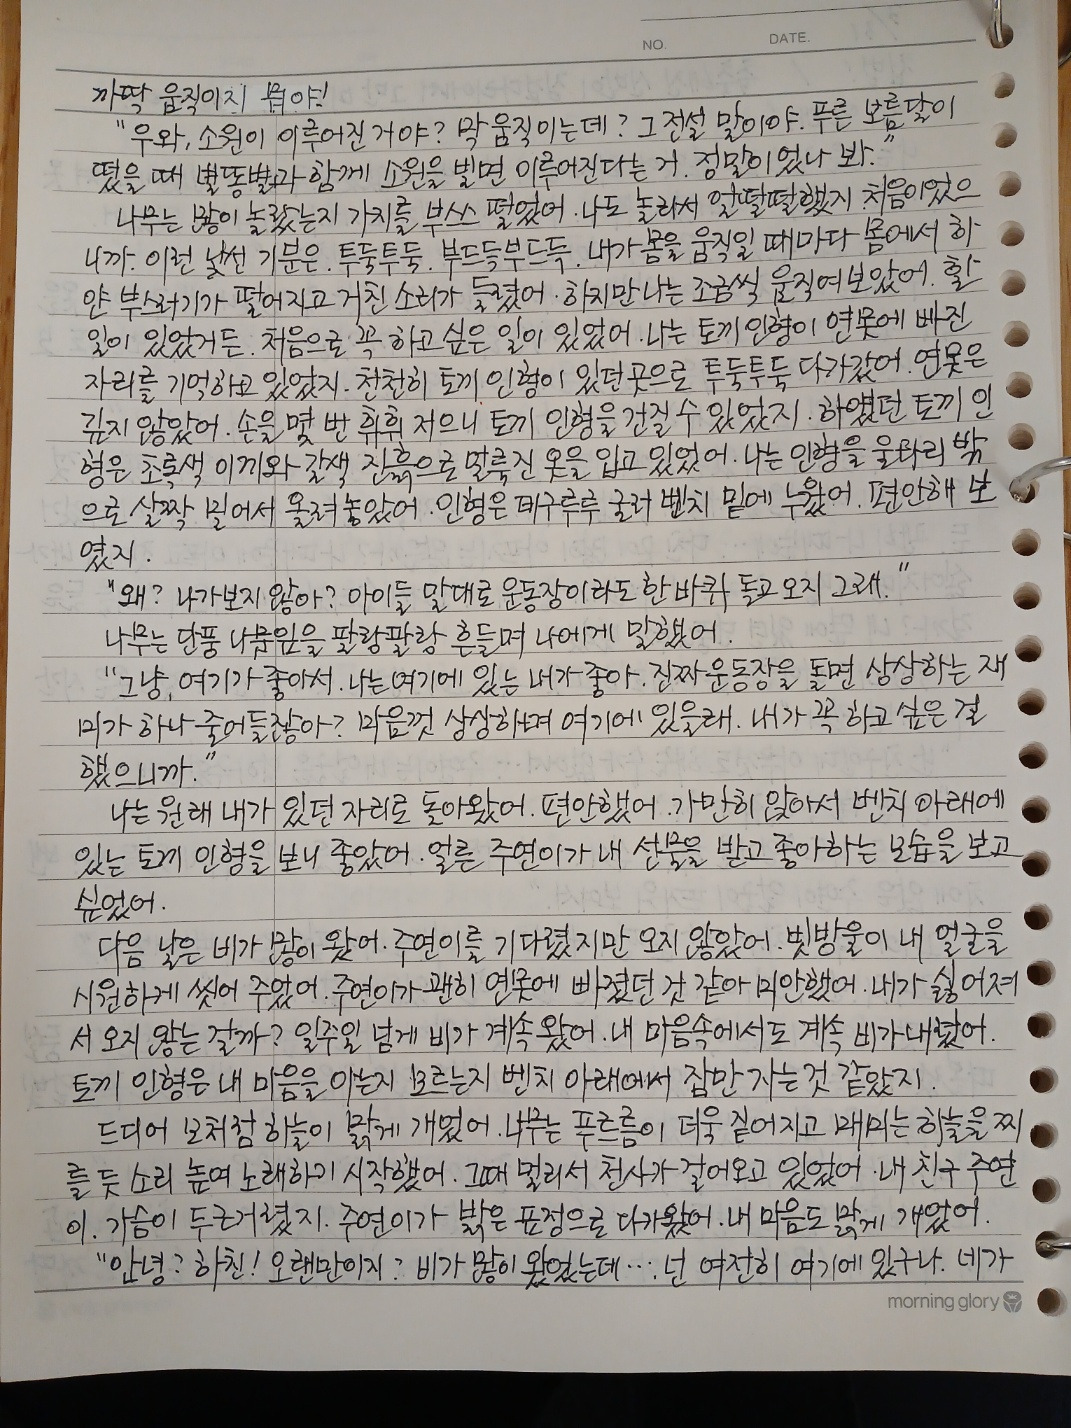 NO. DATE.
까딱 움직이지 뭐야!
"우와, 소원이 이루어진 거야? 막 움직이는데? 그 전설 말이야. 푸른 보름달이
떴을 때 별똥별과 함께 소원을 빌면 이루어진다는 거. 정말이었나 봐."
나무는 많이 놀랐는지 가지를 부스스 떨었어. 나도 놀라서 얼떨떨했지 처음이었으
니까. 이런 낯선 기분은. 투둑투둑. 부드득부드득. 내가 몸을 움직일 때마다 몸에서 하
얀 부스러기가 떨어지고 거친 소리가 들렸어. 하지만 나는 조금씩 움직여 보았어. 할
일이 있었거든. 처음으로 꼭 하고 싶은 일이 있었어. 나는 토끼 인형이 연못에 빠진
자리를 기억하고 있었지. 천천히 토끼 인형이 있던 곳으로 투둑투둑 다가갔어. 연못은
깊지 않았어. 손을 몇 번 휘휘 저으니 토끼 인형을 건질 수 있었지. 하얬던 토끼 인
형은 초록색 이끼와 갈색 진흙으로 얼룩진 옷을 입고 있었어. 나는 인형을 울타리 밖
으로 살짝 밀어서 올려놓았어. 인형은 떼구루루 굴러 벤치 밑에 누웠어. 편안해 보
였지.
"왜? 나가보지 않아? 아이들 말대로 운동장이라도 한 바퀴 돌고 오지 그래."
나무는 단풍 나뭇잎을 팔랑팔랑 흔들며 나에게 말했어.
"그냥, 여기가 좋아서. 나는 여기에 있는 내가 좋아. 진짜 운동장을 돌면 상상하는 재
미가 하나 줄어들잖아? 마음껏 상상하며 여기에 있을래. 내가 꼭 하고 싶은 걸
했으니까."
나는 원래 내가 있던 자리로 돌아왔어. 편안했어. 가만히 앉아서 벤치 아래에
있는 토끼 인형을 보니 좋았어. 얼른 주연이가 내 선물을 받고 좋아하는 모습을 보고
싶었어.
다음 날은 비가 많이 왔어. 주연이를 기다렸지만 오지 않았어. 빗방울이 내 얼굴을
시원하게 씻어 주었어. 주연이가 괜히 연못에 빠졌던 것 같아 미안했어. 내가 싫어져
서 오지 않는 걸까? 일주일 넘게 비가 계속 왔어. 내 마음속에서도 계속 비가 내렸어.
토끼 인형은 내 마음을 아는지 모르는지 벤치 아래에서 잠만 자는 것 같았지.
드디어 모처럼 하늘이 맑게 개었어. 나무는 푸르름이 더욱 짙어지고 매미는 하늘을 찌
를 듯 소리 높여 노래하기 시작했어. 그때 멀리서 천사가 걸어오고 있었어. 내 친구 주연
이. 가슴이 두근거렸지. 주연이가 밝은 표정으로 다가왔어. 내 마음도 맑게 개었어.
"안녕? 하친! 오랜만이지? 비가 많이 왔었는데…. 넌 여전히 여기에 있구나. 네가
morning glory